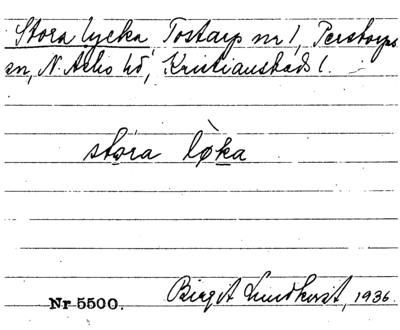 Stora lycka, Tostarp nr 1, Perstorps
sn, N. Åsbo hd, Kristianstads l.
stóra lø̀ka
Nr 5500.
Birgit Lundkvist, 1936.